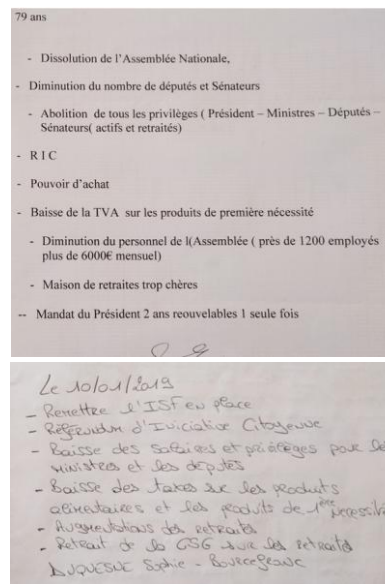 79 ans
- Dissolution de l'Assemblée Nationale,
- Diminution du nombre de députés et Sénateurs
- Abolition de tous les privilèges ( Président – Ministres – Députés –
Sénateurs( actifs et retraités)
- R I C
- Pouvoir d'achat
- Baisse de la TVA sur les produits de première nécessité
- Diminution du personnel de l(Assemblée ( près de 1200 employés
plus de 6000€ mensuel)
- Maison de retraites trop chères
-- Mandat du Président 2 ans reouvelables 1 seule fois
Le 10/01/2019
- Remettre l'ISF en place
- Référendum d'Iniciative Citoyenne
- Baisse des Salaires et privilèges pour les
ministres et les députés
- Baisse des taxes sur les produits
alimentaires et les produits de 1ère necessité
- Augmentations des retraites
- Retrait de la CSG sur les retraites
DUQUESNE Sophie - Bourgeoane